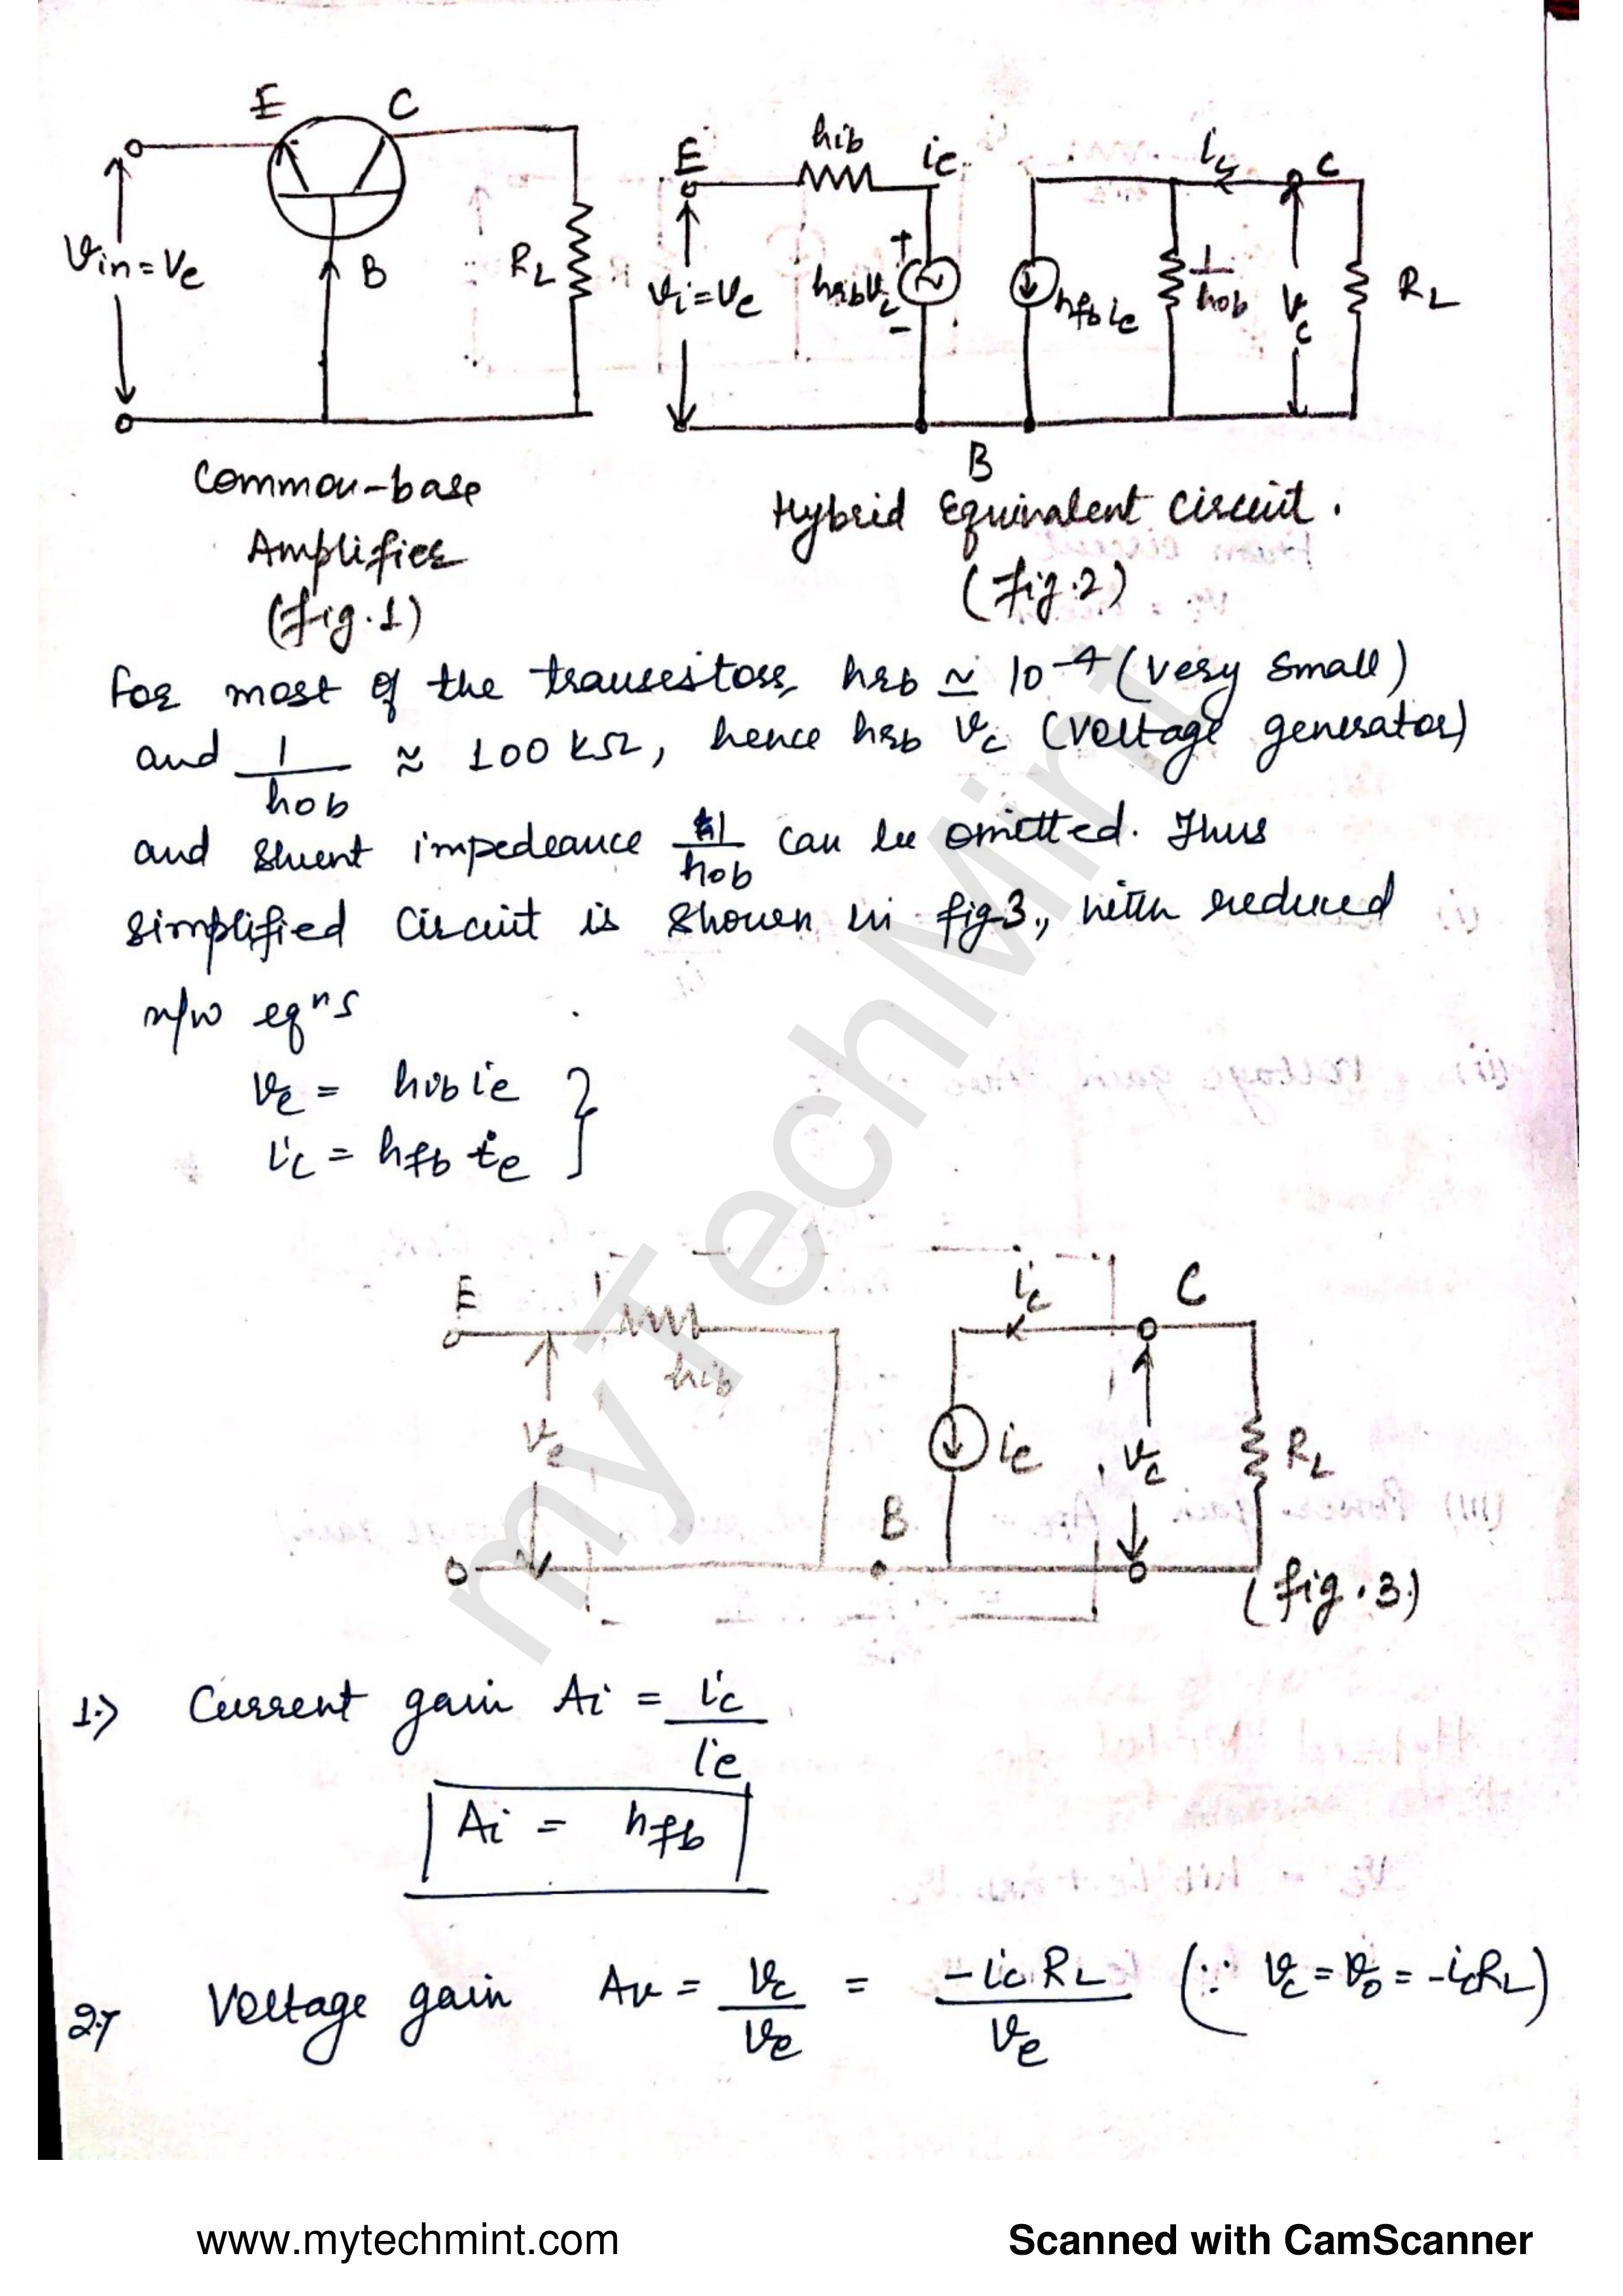 E C
Vin = Ve
B
RL
E hib ie ic C
Vi = Ve
hrb Vc
+
-
hfb ie
1/hob
Vc
RL
B
Common-base
Amplifier
(fig.1)
Hybrid Equivalent circuit.
(fig.2)
For most of the transistors, hrb ≃ 10^-4 (very small)
and 1/hob ≈ 100 kΩ, hence hrb Vc (Voltage generator)
and shunt impedeance 1/hob can be omitted. Thus
simplified circuit is shown in fig 3., with reduced
n/w eqns
Ve = hib ie }
ic = hfb ie
E
hib
Ve
ic C
ic
Vc
RL
B
(fig.3)
1.) Current gain Ai = ic/ie
Ai = hfb
2.) Voltage gain Av = Vc/Ve = -ic RL/Ve (∵ Vc = Vo = -ic RL)
myTechMint
www.mytechmint.com
Scanned with CamScanner